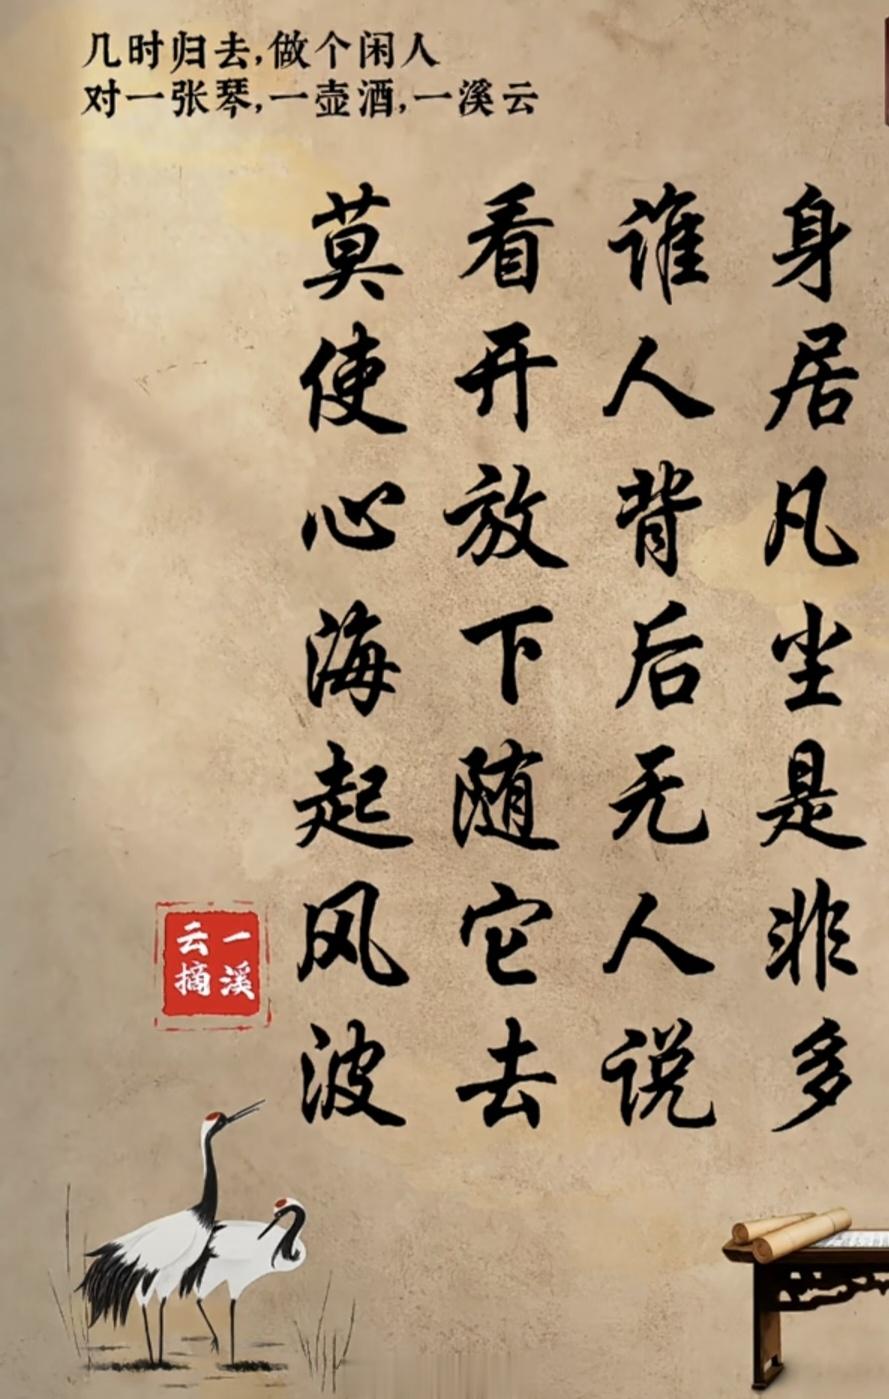 几时归去,做个闲人
对一张琴,一壶酒,一溪云
身居凡尘是非多
谁人背后无人说
看开放下随它去
莫使心海起风波
一溪
云摘